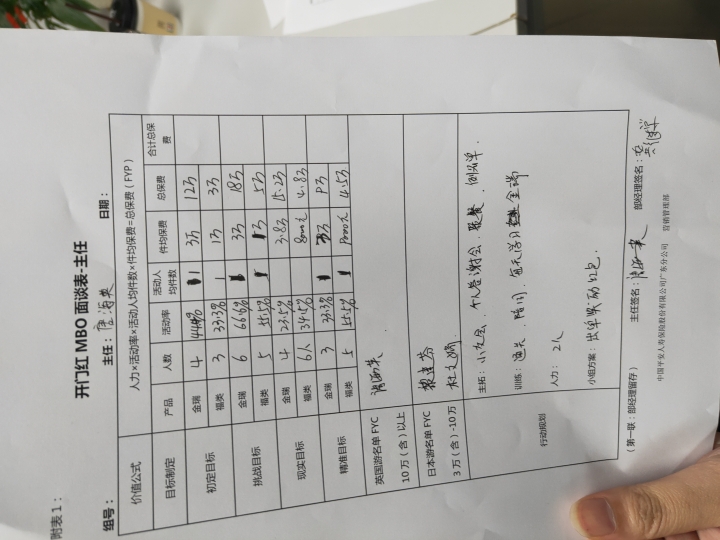 附表1：
开门红 MBO 面谈表-主任
组号： 主任： 日期：
价值公式 人力×活动率×活动人均件数×件均保费=总保费（FYP）
目标制定 产品 人数 活动率 活动人均件数 件均保费 总保费 合计总保费
初定目标 金瑞 4 1 3万 12万
福类 3 33.3% 1 1万 3万
挑战目标 金瑞 6 66.6% 3万 18万
福类 5 5万
现实目标 金瑞 4 3.8万 15.2万
福类 6人 8000元 4.8万
精准目标 金瑞 3 33.3% 3万
福类 5
英国游名单 FYC
10万（含）以上
日本游名单 FYC
3万（含）-10万
行动规划
主拓：小交会．个人答谢会．
训练：通关．陪同．每天学习 金瑞
人力：2人
小组方案：出单奖励红包．
（第一联：部经理留存） 主任签名： 部经理签名：
中国平安人寿保险股份有限公司广东分公司 营销管理部